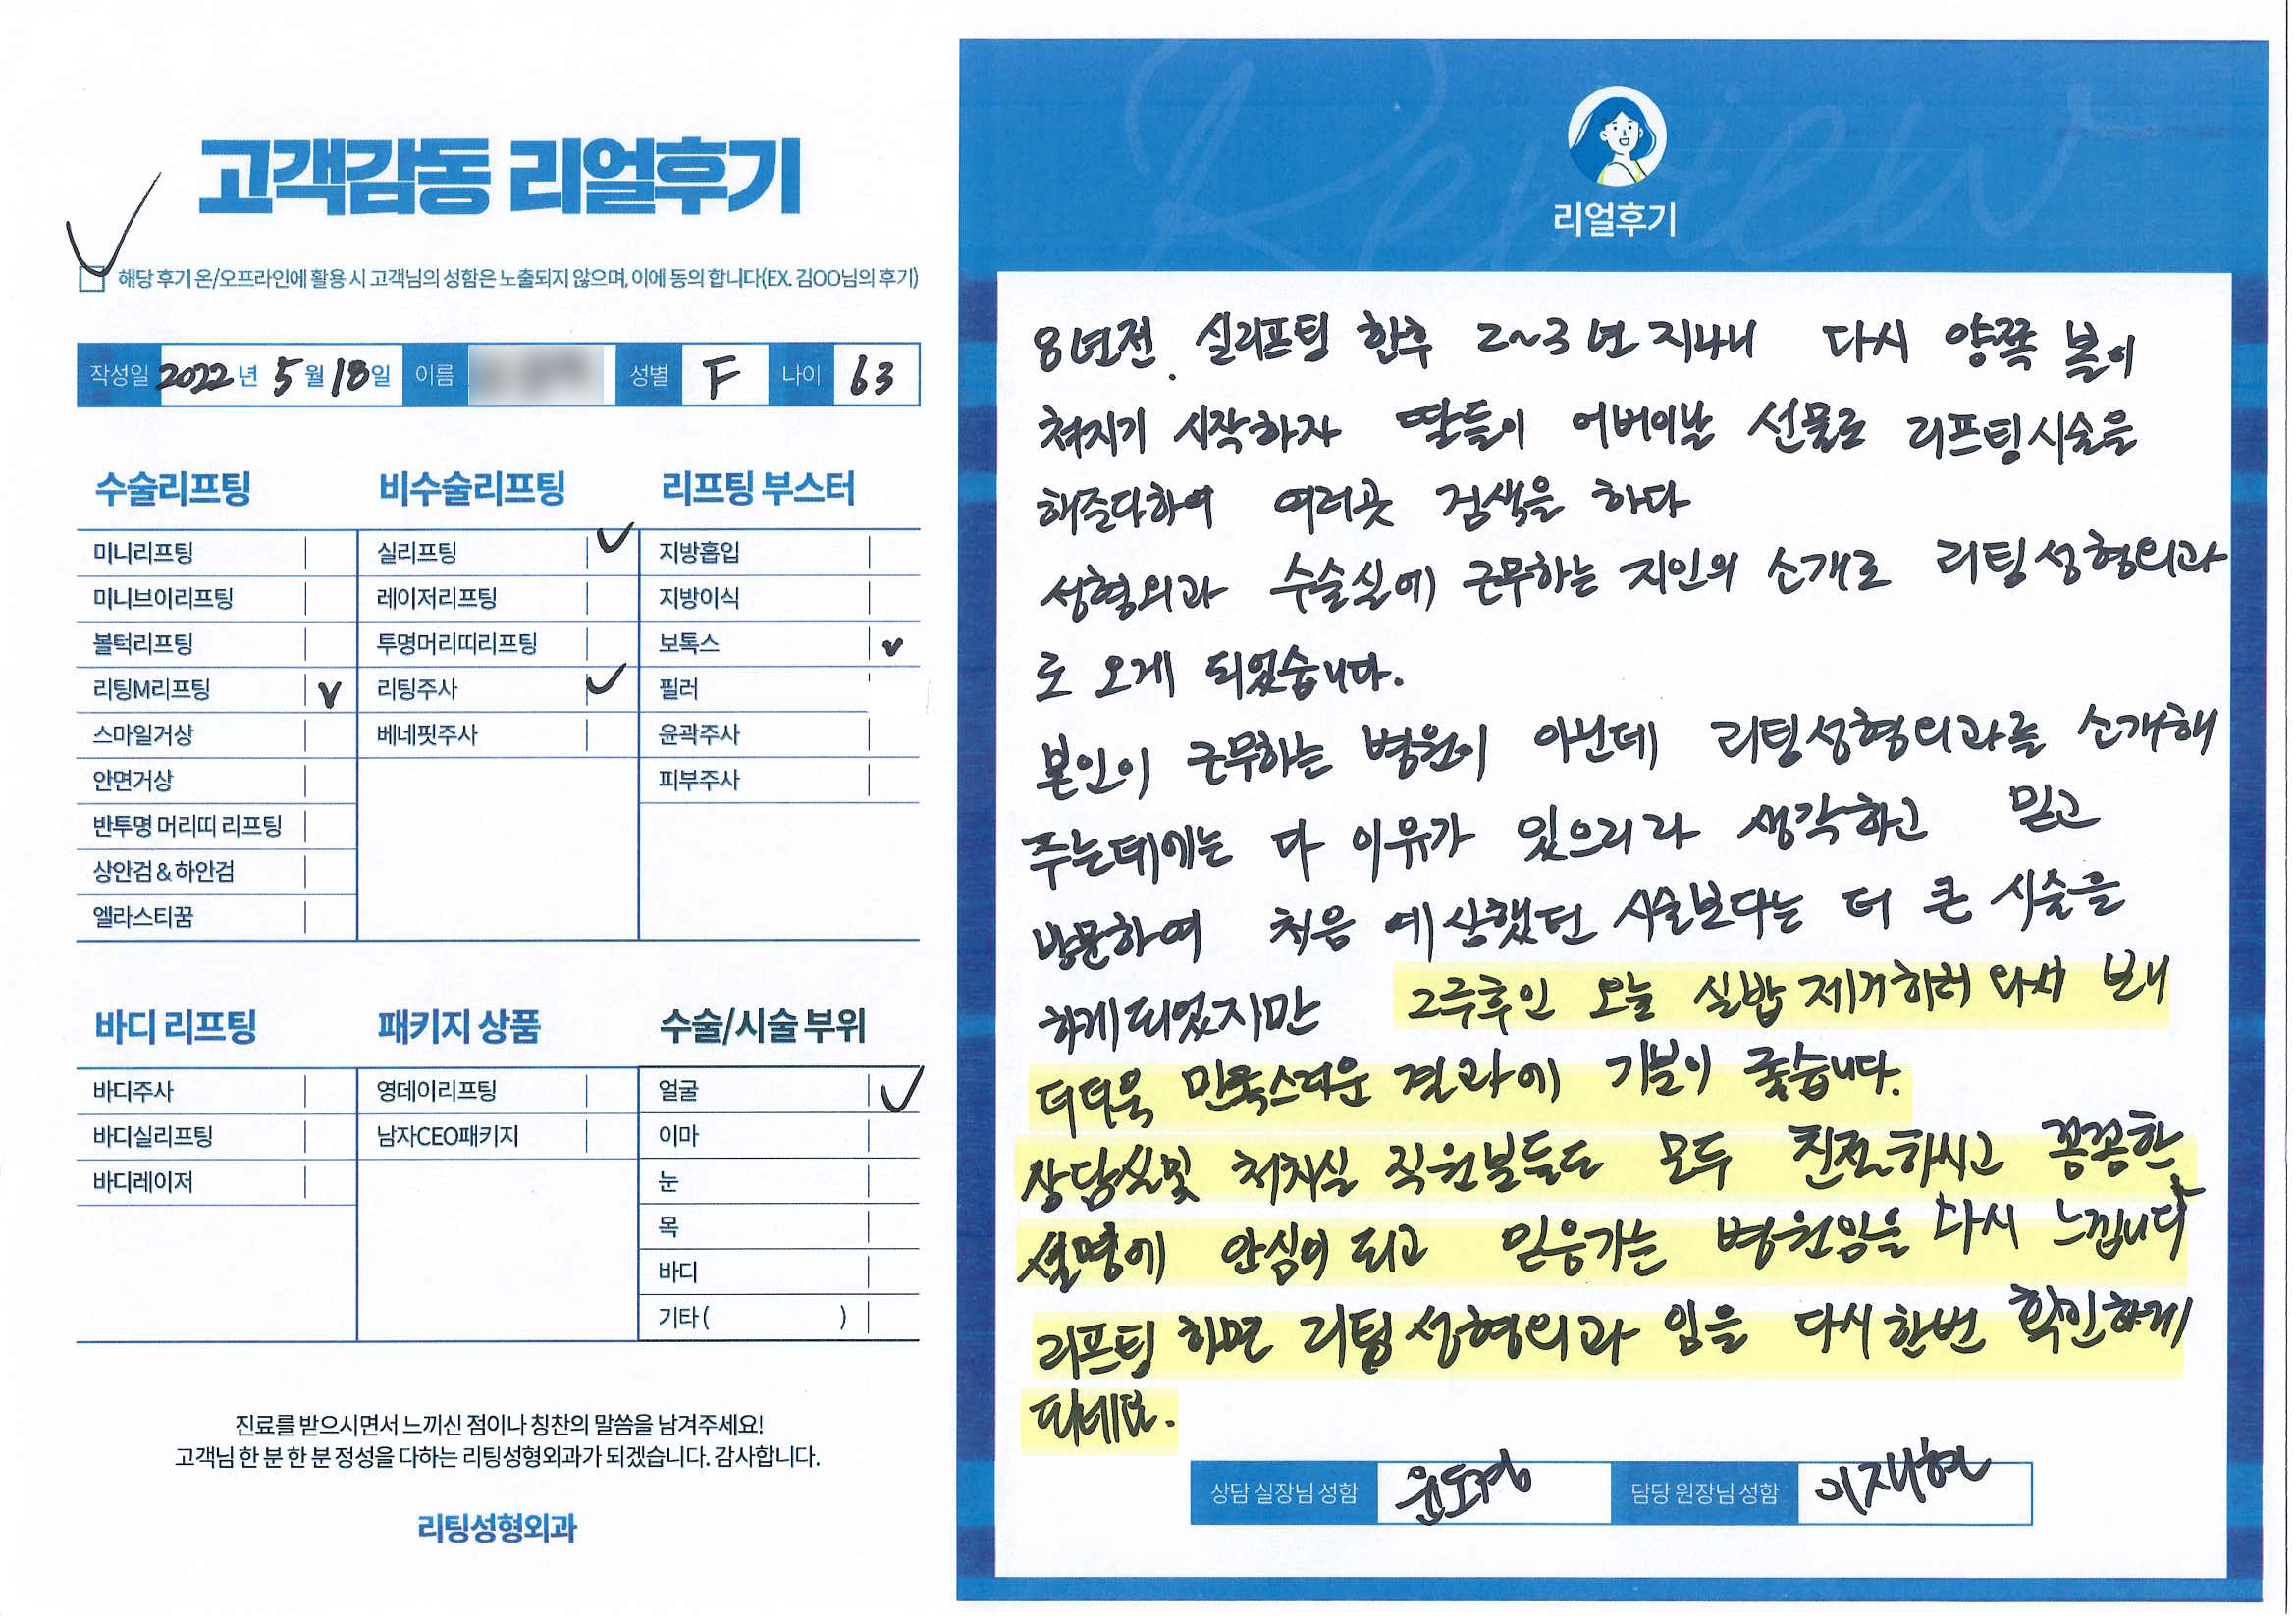 고객감동 리얼후기
해당 후기 온/오프라인에 활용 시 고객님의 성함은 노출되지 않으며, 이에 동의 합니다(EX. 김OO님의 후기)
작성일 2022년 5월 18일 이름 성별 F 나이 63
수술리프팅
미니리프팅
미니브이리프팅
볼턱리프팅
리팅M리프팅 v
스마일거상
안면거상
반투명 머리띠 리프팅
상안검 & 하안검
엘라스티꿈
비수술리프팅
실리프팅 ✓
레이저리프팅
투명머리띠리프팅
리팅주사 ✓
베네핏주사
리프팅 부스터
지방흡입
지방이식
보톡스 v
필러
윤곽주사
피부주사
바디 리프팅
바디주사
바디실리프팅
바디레이저
패키지 상품
영데이리프팅
남자CEO패키지
수술/시술 부위
얼굴 ✓
이마
눈
목
바디
기타 ( )
진료를 받으시면서 느끼신 점이나 칭찬의 말씀을 남겨주세요!
고객님 한 분 한 분 정성을 다하는 리팅성형외과가 되겠습니다. 감사합니다.
리팅성형외과
Review
리얼후기
8년전. 실리프팅 한후 2~3년 지나니 다시 양쪽 볼이
쳐지기 시작하자 딸들이 어버이날 선물로 리프팅시술을
해준다하여 여러곳 검색을 하다
성형외과 수술실에 근무하는 지인의 소개로 리팅성형외과
로 오게 되었습니다.
본인이 근무하는 병원이 아닌데 리팅성형외과를 소개해
주는데에는 다 이유가 있으리라 생각하고 믿고
방문하여 처음 예상했던 시술보다는 더 큰 시술을
하게되었지만 2주후인 오늘 실밥 제거하러 와서 보니
더더욱 만족스러운 결과에 기분이 좋습니다.
상담실및 처치실 직원분들도 모두 친절하시고 꼼꼼한
설명에 안심이 되고 믿음가는 병원임을 다시 느낍니다
리프팅 하면 리팅성형외과 임을 다시한번 확인하게
되네요.
상담 실장님 성함 윤도경 담당 원장님 성함 이재현